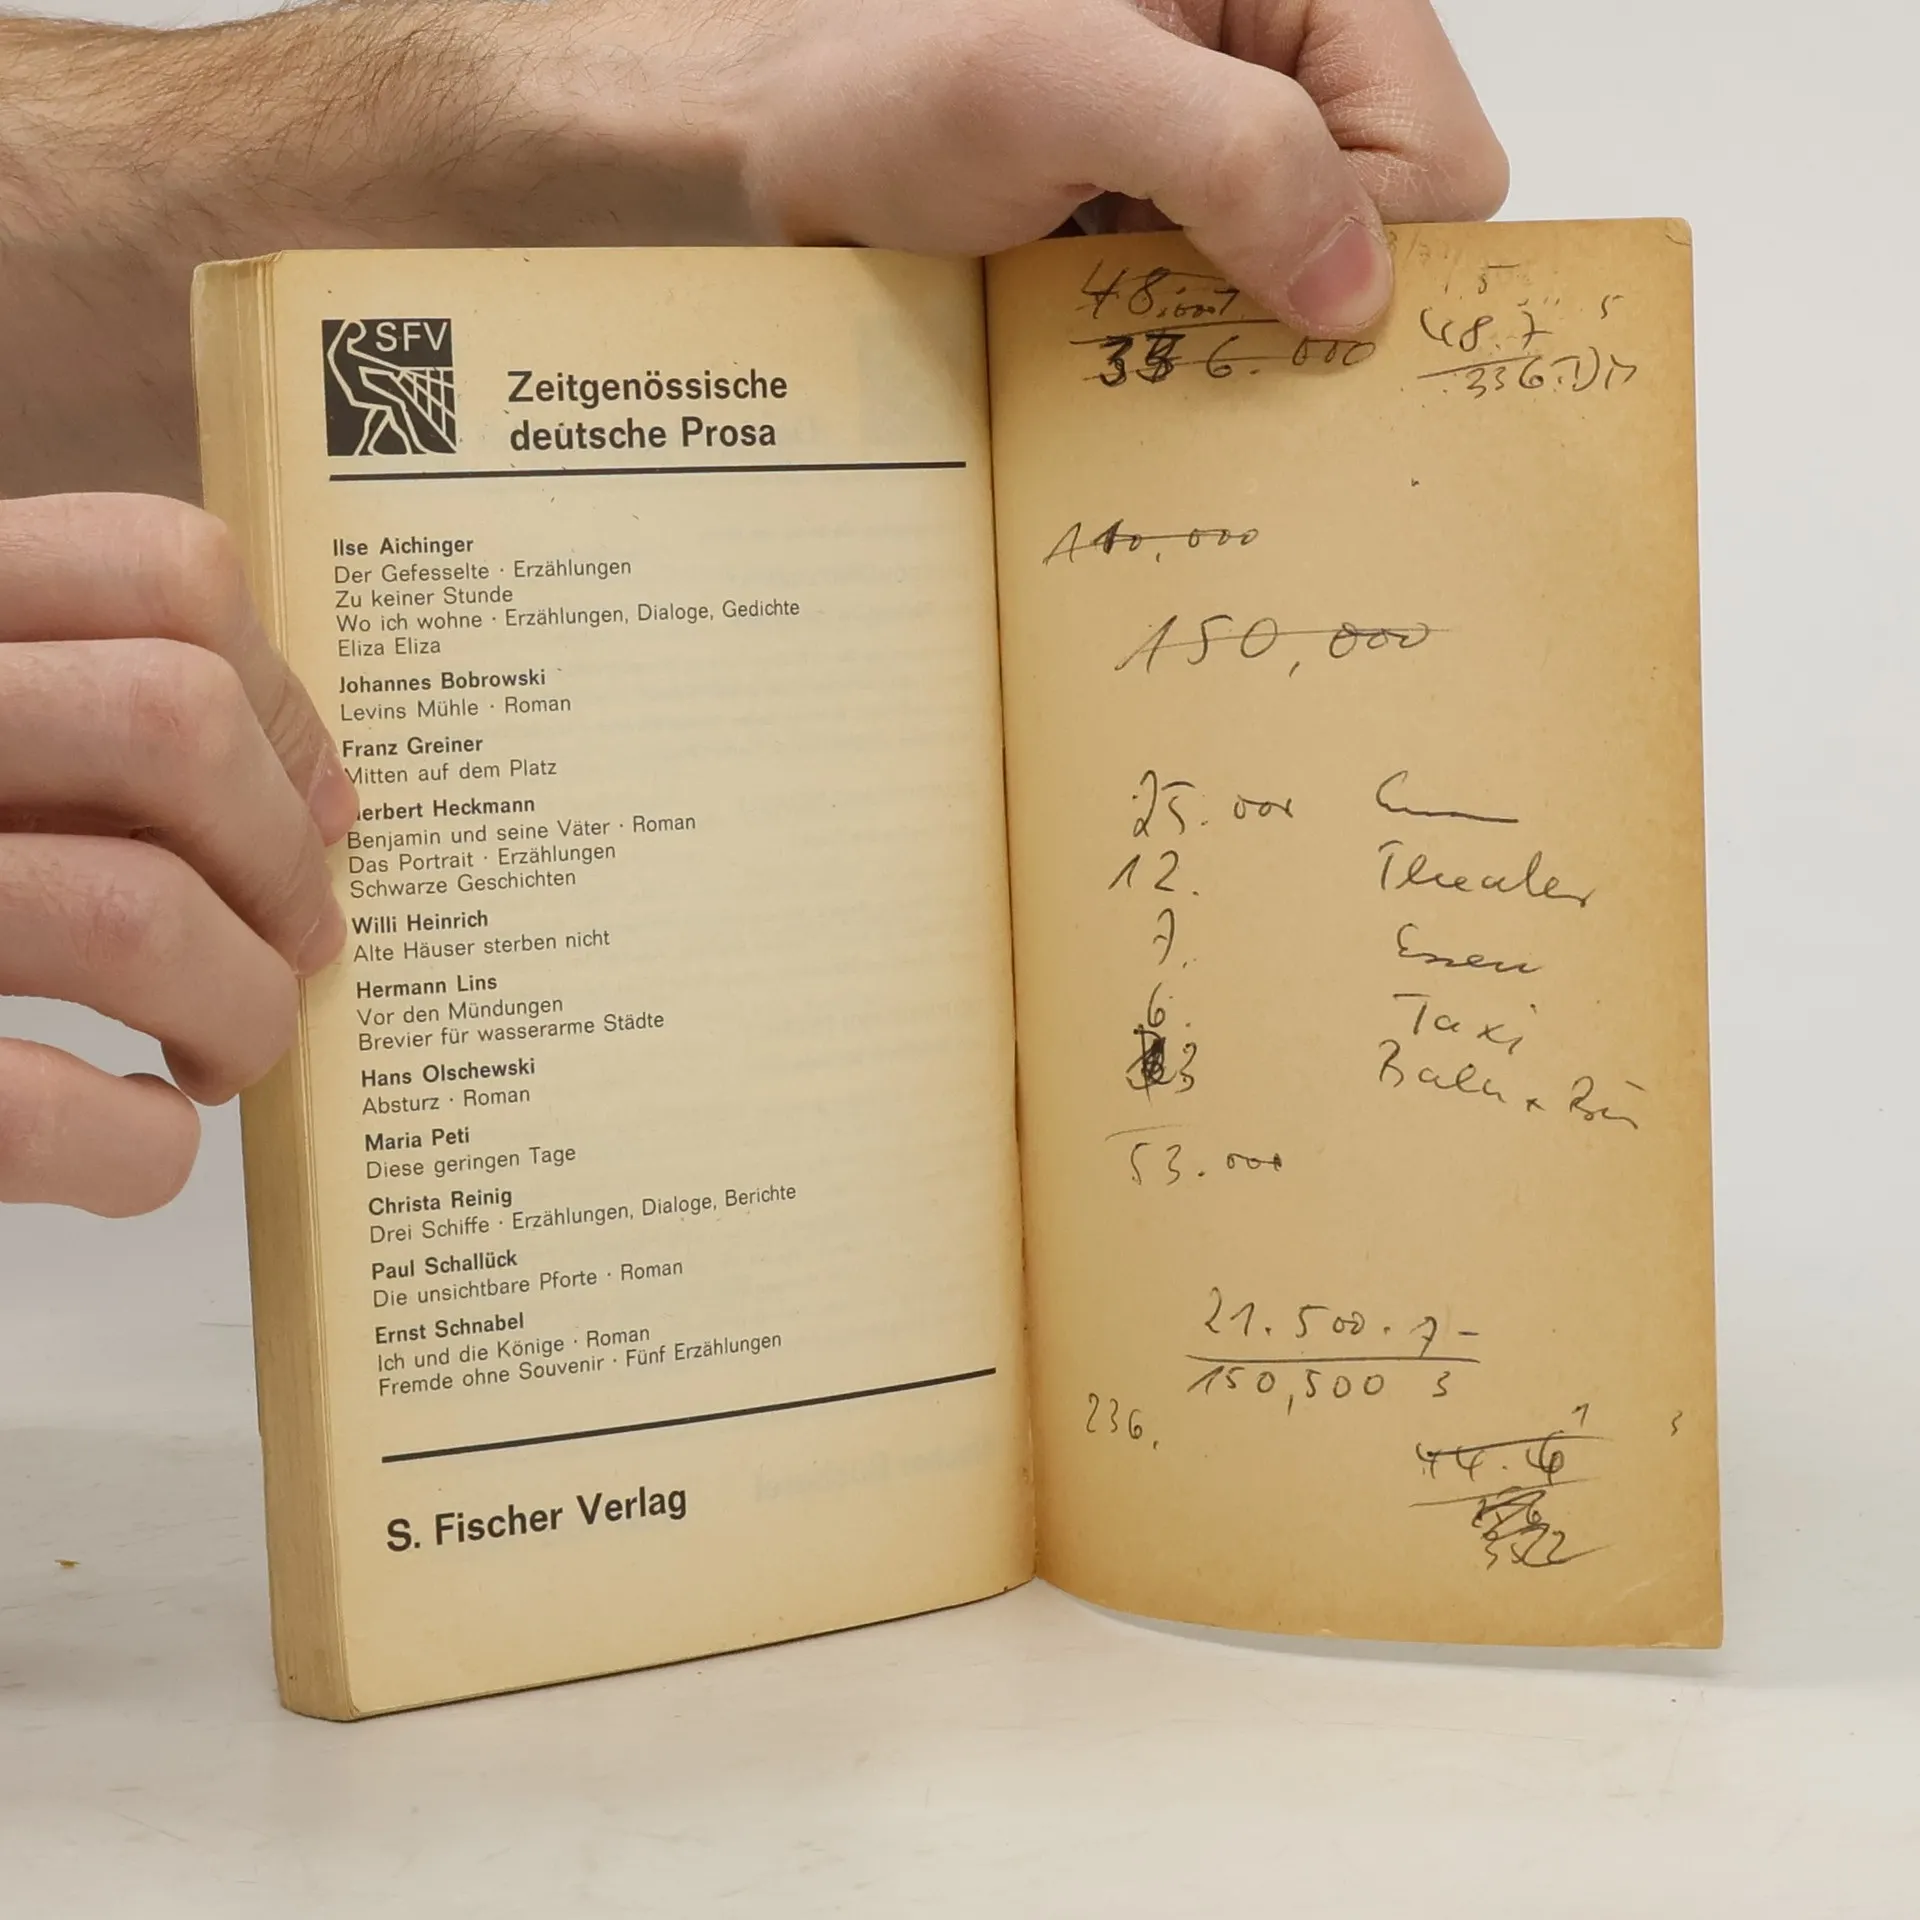 SFV
Zeitgenössische
deutsche Prosa
Ilse Aichinger
Der Gefesselte · Erzählungen
Zu keiner Stunde
Wo ich wohne · Erzählungen, Dialoge, Gedichte
Eliza Eliza
Johannes Bobrowski
Levins Mühle · Roman
Franz Greiner
Mitten auf dem Platz
erbert Heckmann
Benjamin und seine Väter · Roman
Das Portrait · Erzählungen
Schwarze Geschichten
Willi Heinrich
Alte Häuser sterben nicht
Hermann Lins
Vor den Mündungen
Brevier für wasserarme Städte
Hans Olschewski
Absturz · Roman
Maria Peti
Diese geringen Tage
Christa Reinig
Drei Schiffe · Erzählungen, Dialoge, Berichte
Paul Schallück
Die unsichtbare Pforte · Roman
Ernst Schnabel
Ich und die Könige · Roman
Fremde ohne Souvenir · Fünf Erzählungen
S. Fischer Verlag
5
48.7 5
336.000
336.DM
150,000
25.000
12. Theater
7. Essen
6. Taxi
3
53.000
21.500.7-
150,500 3
236.
1 3
44.